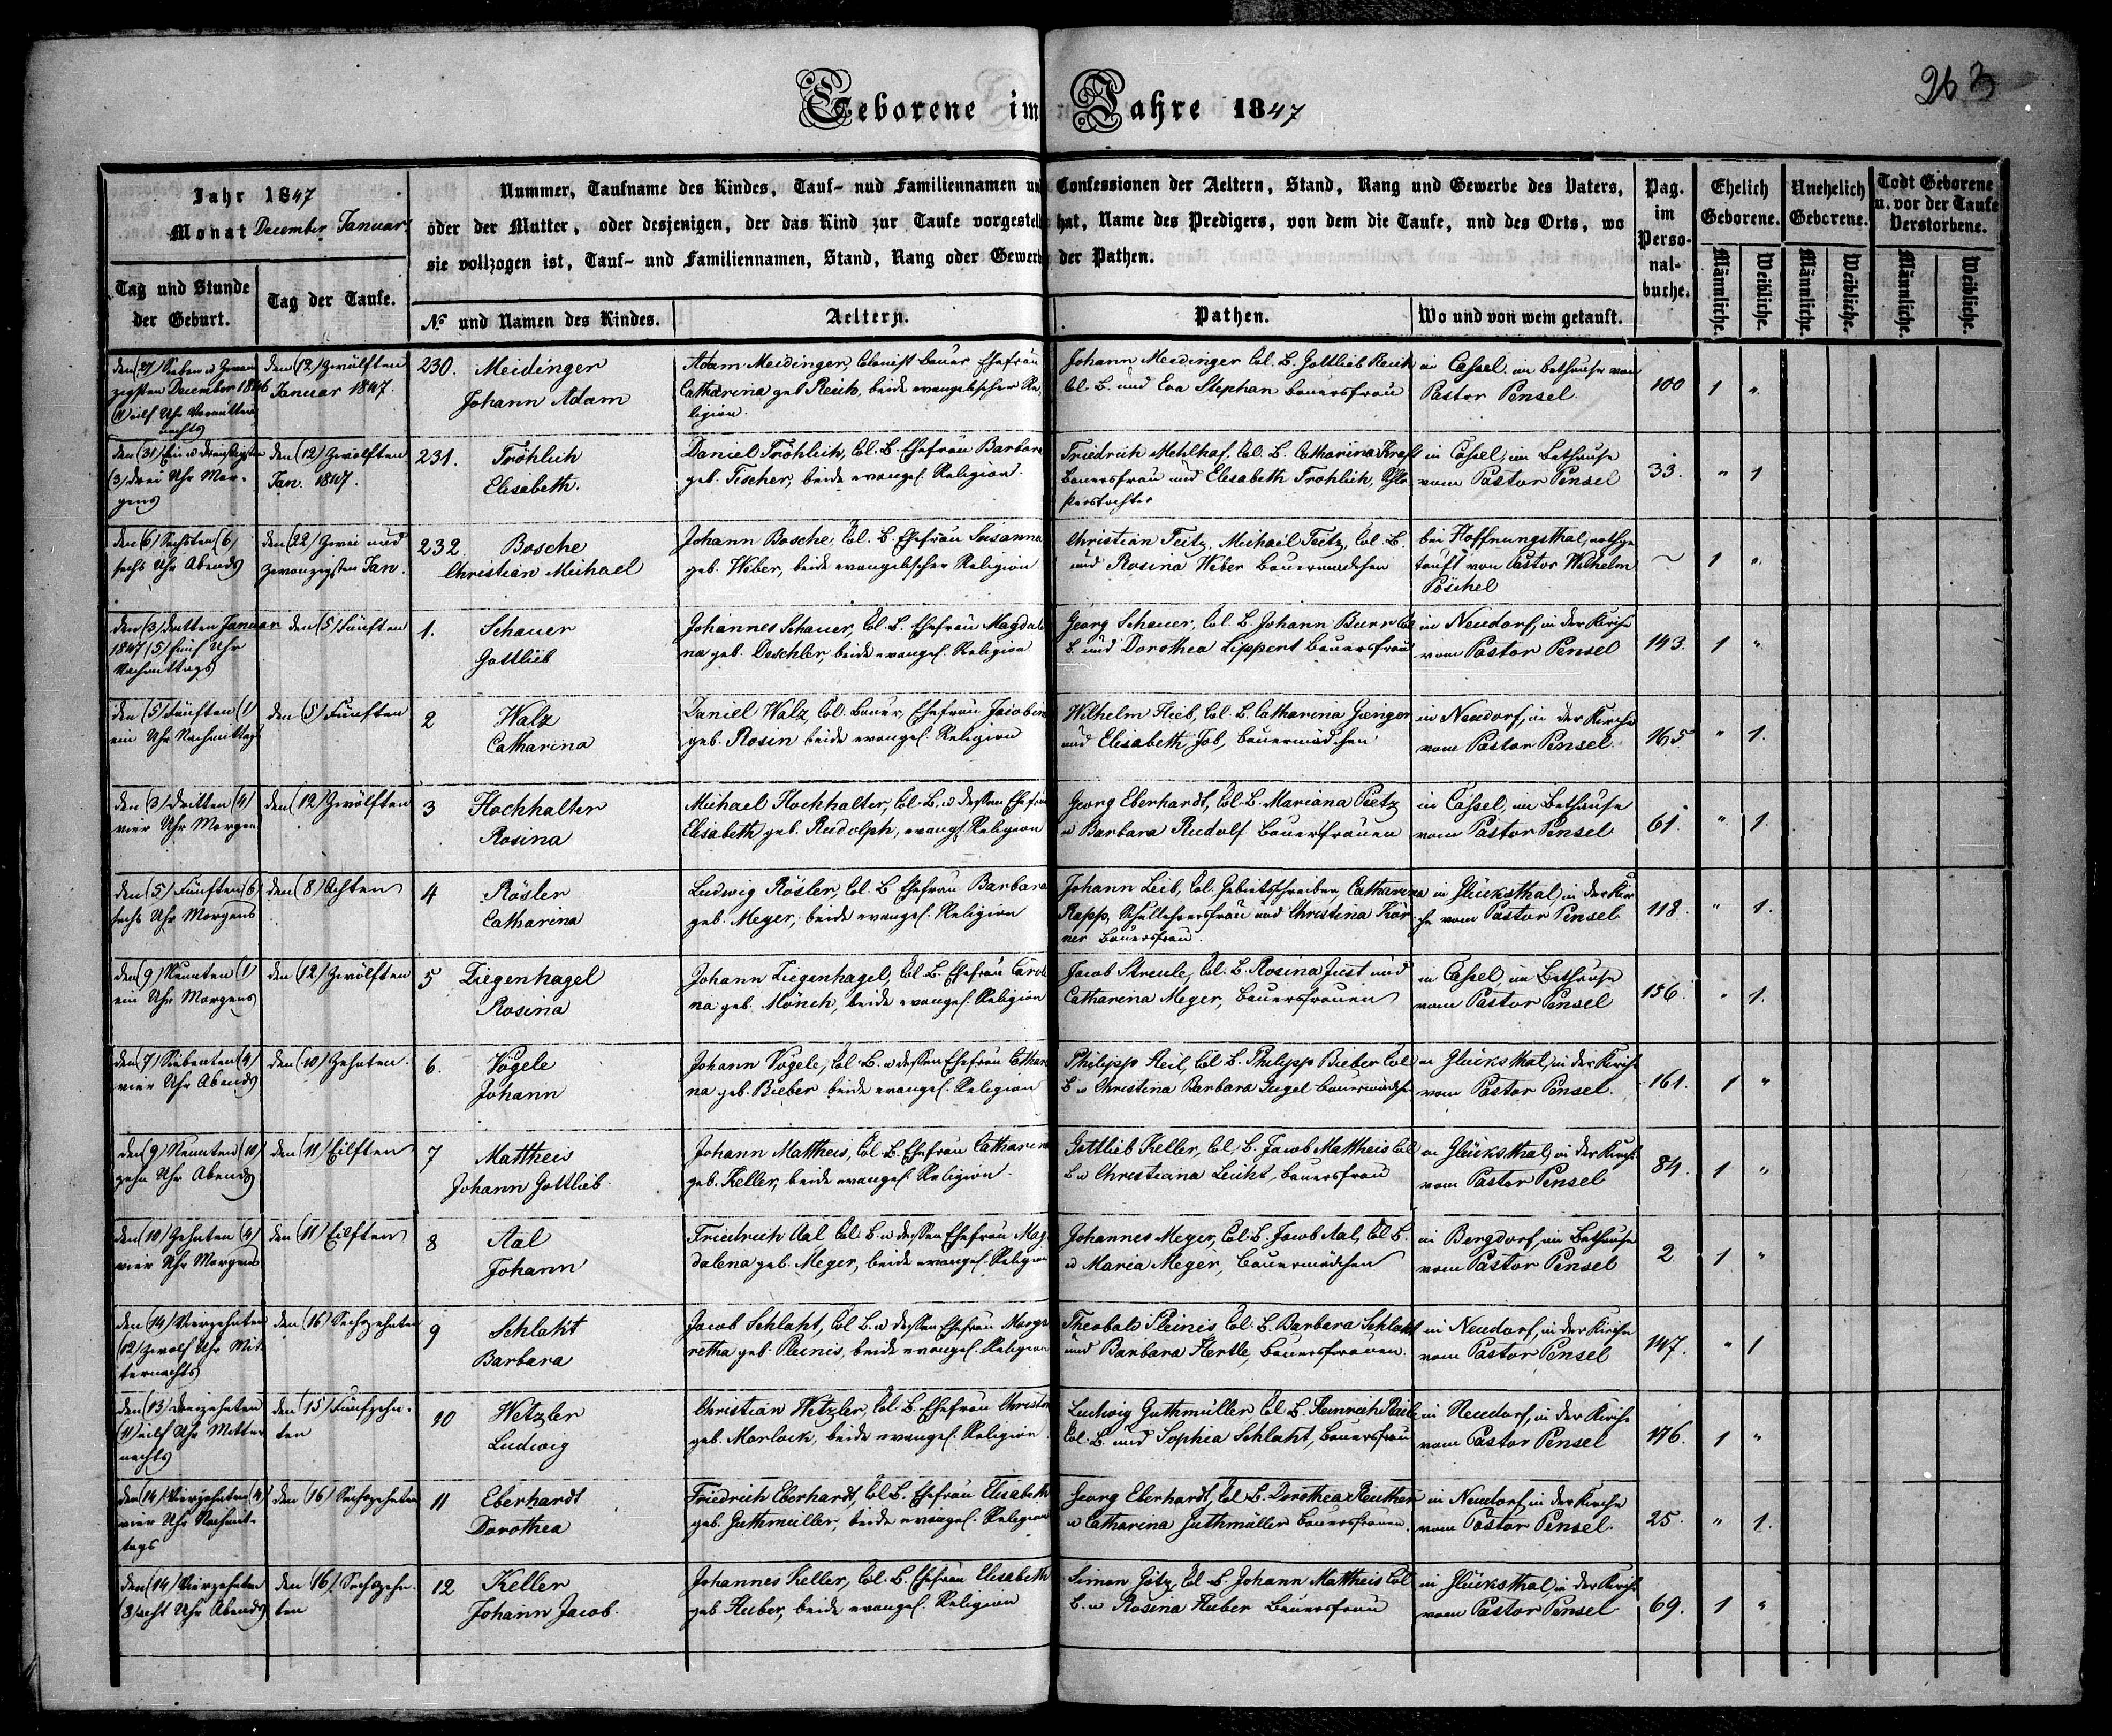 263
Geborene im Jahre 1847
Jahr 1847
Monat December Januar
Nummer, Taufname des Kindes, Tauf- und Familiennamen und Confessionen der Aeltern, Stand, Rang und Gewerbe des Vaters,
oder der Mutter, oder desjenigen, der das Kind zur Taufe vorgestellt hat, Name des Predigers, von dem die Taufe, und des Orts, wo
sie vollzogen ist, Tauf- und Familiennamen, Stand, Rang oder Gewerbe der Pathen.
Pag. im Perso- nal- buche.
Ehelich Geborene.
Unehelich Geborene.
Todt Geborene u. vor der Taufe Verstorbene.
Tag und Stunde der Geburt.
Tag der Taufe.
№ und Namen des Kindes.
Aeltern.
Pathen.
Wo und von wem getauft.
Männliche. Weibliche. Männliche. Weibliche. Männliche. Weibliche.
den (27) Sieben u Zwan
zigsten December 1846
(11) eilf Uhr Vormitter
nachts
den (12) Zwölften
Januar 1847.
230. Meidinger
Johann Adam
Adam Meidinger, Colonist Bauer Ehefrau
Catharina geb Reich, beide evangelischer Re,
ligion.
Johann Meidinger Col. B. Gottlieb Reich
Col. B. und Eva Stephan Bauersfrau
in Cassel im Bethause von
Pastor Pensel.
100 1 "
den (31) Ein u dreißigsten
(3) drei Uhr Mor-
gens
den (12) Zwölften
Jan. 1847.
231. Fröhlich
Elisabeth.
Daniel Fröhlich, Col. B. Ehefrau Barbara
geb. Fischer, beide evangel. Religion.
Friedrich Mehlhaf, Col. B. Catharina Kraft
Bauersfrau und Elisabeth Fröhlich,
in Cassel, im Bethause
vom Pastor Pensel
33. " 1
den (6) Sechsten (6)
sechs Uhr Abends
den (22) Zwei und
zwanzigsten Jan.
232. Bosche
Christian Michael
Johann Bosche, Col. B. Ehefrau Susanna
geb. Weber, beide evangelischer Religion
Christian Teitz, Michael Teitz, Col. B.
und Rosina Weber Bauermädchen
bei Hoffnungsthal, nothge
tauft von Pastor Wilhelm
Pöschel
~ 1 "
den (3) dritten Januar
1847 (5) fünf Uhr
Nachmittags
den (5) Fünften
1. Schauer
Gottlieb
Johannes Schauer, Col. B. Ehefrau Magdale
na geb. Deschler, beide evangel. Religion
Georg Scheuer, Col. B. Johann Burr Col
B. und Dorothea Lippert Bauersfrau
in Neudorf, in der Kirche
vom Pastor Pensel
143. 1 "
den (5) Fünften (1)
ein Uhr Nachmittag
den (5) Fünften
2 Walz
Catharina
Daniel Walz, Col. Bauer, Ehefrau Jacobin
geb. Rosin beide evangel. Religion
Wilhelm Hieb, Col. B. Catharina Gaenger
und Elisabeth Job, Bauermädchen
in Neudorf, in der Kirche
vom Pastor Pensel.
165 " 1.
den (3) dritten (4)
vier Uhr Morgens
den (12) Zwölften
3 Hochhalter
Rosina
Michael Hochhalter, Col. B. u dessen Ehefrau
Elisabeth geb. Rudolph, evangl. Religion
Georg Eberhardt, Col. B. Mariana Peetz
u Barbara Rudolf Bauersfrauen
in Cassel, im Bethause
vom Pastor Pensel
61. " 1.
den (5) Fünften (6)
sechs Uhr Morgens
den (8) Achten
4 Rösler
Catharina
Ludwig Rösler, Col. B. Ehefrau Barbara
geb. Meyer, beide evangel. Religion
Johann Leib, Col. Gebietsschreiber Catharina
Rapp, Schullehrersfrau und Christina Kör
ner Bauersfrau.
in Glücksthal, in der Kir
che vom Pastor Pensel
118. " 1.
den (9) Neunten (1)
ein Uhr Morgens
den (12) Zwölften
5 Ziegenhagel
Rosina
Johann Ziegenhagel, Col. B. Ehefrau Caroli
na geb. Mönch, beide evangel. Religion
Jacob Streule, Col. B. Rosina Just und
Catharina Meyer, Bauersfrauen
in Cassel, im Bethause
vom Pastor Pensel
156. " 1.
den (7) Siebenten (4)
vier Uhr Abends
den (10) Zehnten.
6. Vögele
Johann
Johann Vögele, Col. B. u dessen Ehefrau Cathari
na geb. Bieber beide evangel. Religion
Philipp Heil, Col. B. Philipp Bieber Col
B. u Christina Barbara Bauermädche
in Glücksthal, in der Kirche
vom Pastor Pensel.
161. 1 "
den (9) Neunten (10)
zehn Uhr Abends
den (11) Eilften
7 Mattheis
Johann Gottlieb
Johann Mattheis, Col. B. Ehefrau Catharina
geb. Keller, beide evangel. Religion.
Gottlieb Keller, Col. B. Jacob Mattheis Col
B. u Christiana Leicht, Bauersfrau
in Glücksthal, in der Kirche
vom Pastor Pensel
84. 1 "
den (10) Zehnten (4)
vier Uhr Morgens
den (11) Eilften
8 Aal
Johann
Friedrich Aal Col. B. u dessen Ehefrau Mag
dalena geb. Meyer, beide evangel. Religion
Johannes Meyer, Col. B. Jacob Aal, Col. B.
u Maria Meyer, Bauermädchen
in Bergdorf, im Bethause
vom Pastor Pensel
2 1 "
den (14) Vierzehnten
(12) Zwölf Uhr Mit
ternachts
den (16) Sechszehnten
9 Schlaht
Barbara
Jacob Schlaht, Col. B. u dessen Ehefrau Marga
retha geb. Pleinis, beide evangel. Religion
Theobald Pleinis Col. B. Barbara Schlaht
und Barbara Hertle, Bauersfrauen.
in Neudorf, in der Kirche
vom Pastor Pensel
147. " 1
den (13) dreizehnten
(11) eilf Uhr Mitter
nachts
den (15) Fünfzehn-
ten
10 Wetzler
Ludwig
Christian Wetzler, Col. B. Ehefrau Christin
geb. Morlock, beide evangel. Religion
Ludwig Guthmüller Col. B. Heinrich
Col. B. und Sophia Schlaht, Bauersfrau
in Neudorf, in der Kirche
vom Pastor Pensel
176. 1 "
den (14) Vierzehnten (4)
vier Uhr Nachmit-
tags
den (16) Sechszehnten
11 Eberhardt
Dorothea
Friedrich Eberhardt, Col. B. Ehefrau Elisabeth
geb. Guthmüller, beide evangel. Religion
Georg Eberhardt, Col. B. Dorothea Reuther
u Catharina Guthmüller Bauersfrauen.
in Neudorf, in der Kirche
vom Pastor Pensel.
25. " 1.
den (14) Vierzehnten
(8) acht Uhr Abends
den (16) Sechszehn-
ten
12 Keller
Johann Jacob.
Johannes Keller, Col. B. Ehefrau Elisabeth
geb Huber, beide evangel. Religion
Simon Götz, Col. B. Johann Mattheis Col
B. u Rosina Huber Bauersfrau
in Glücksthal, in der Kirche
vom Pastor Pensel
69. 1 "